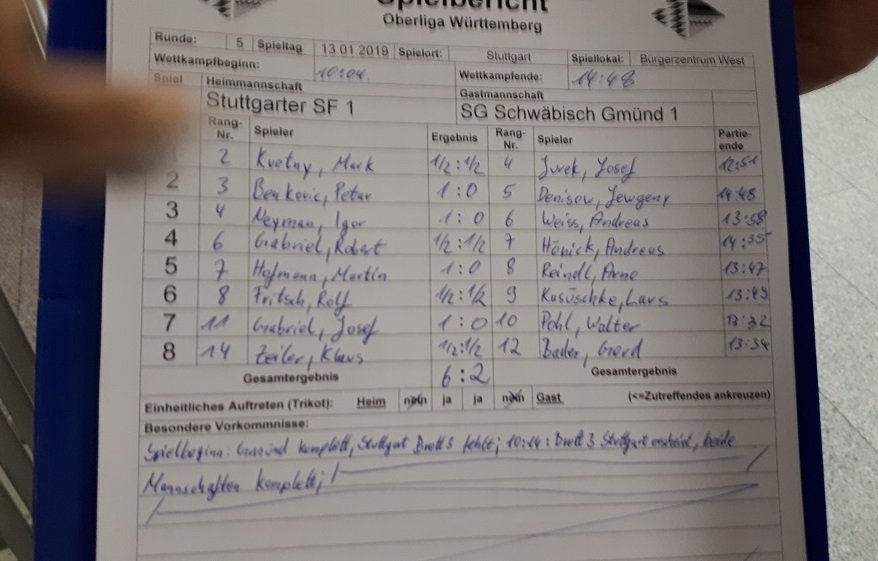 Spielbericht
Oberliga Württemberg
Runde: 5 Spieltag 13.01.2019 Spielort: Stuttgart Spiellokal: Bürgerzentrum West
Wettkampfbeginn: 10:04 Wettkampfende: 14:48
Spiel Heimmannschaft Gastmannschaft
Stuttgarter SF 1 SG Schwäbisch Gmünd 1
Rang-Nr. Spieler Ergebnis Rang-Nr. Spieler Partie-ende
1 2 Kvetny, Mark 1/2:1/2 4 Jurek, Josef 12:51
2 3 Benkovic, Peter 1:0 5 Denisow, Jewgeny 14:48
3 4 Neyman, Igor 1:0 6 Weiss, Andreas 13:58
4 6 Gabriel, Robert 1/2:1/2 7 Hönick, Andreas 14:35
5 7 Hofmann, Martin 1:0 8 Reindl, Arne 13:47
6 8 Fritsch, Rolf 1/2:1/2 9 Kusüschke, Lars 13:49
7 11 Gabriel, Josef 1:0 10 Pohl, Walter 13:32
8 14 Zeiler, Klaus 1/2:1/2 12 Bader, Gerd 13:34
Gesamtergebnis 6:2 Gesamtergebnis
Einheitliches Auftreten (Trikot): Heim nein ja ja nein Gast (<=Zutreffendes ankreuzen)
Besondere Vorkommnisse:
Spielbeginn: Gmünd komplett, Stuttgart Brett 3 fehlt; 10:14: Brett 3 Stuttgart erscheint, beide
Mannschaften komplett;